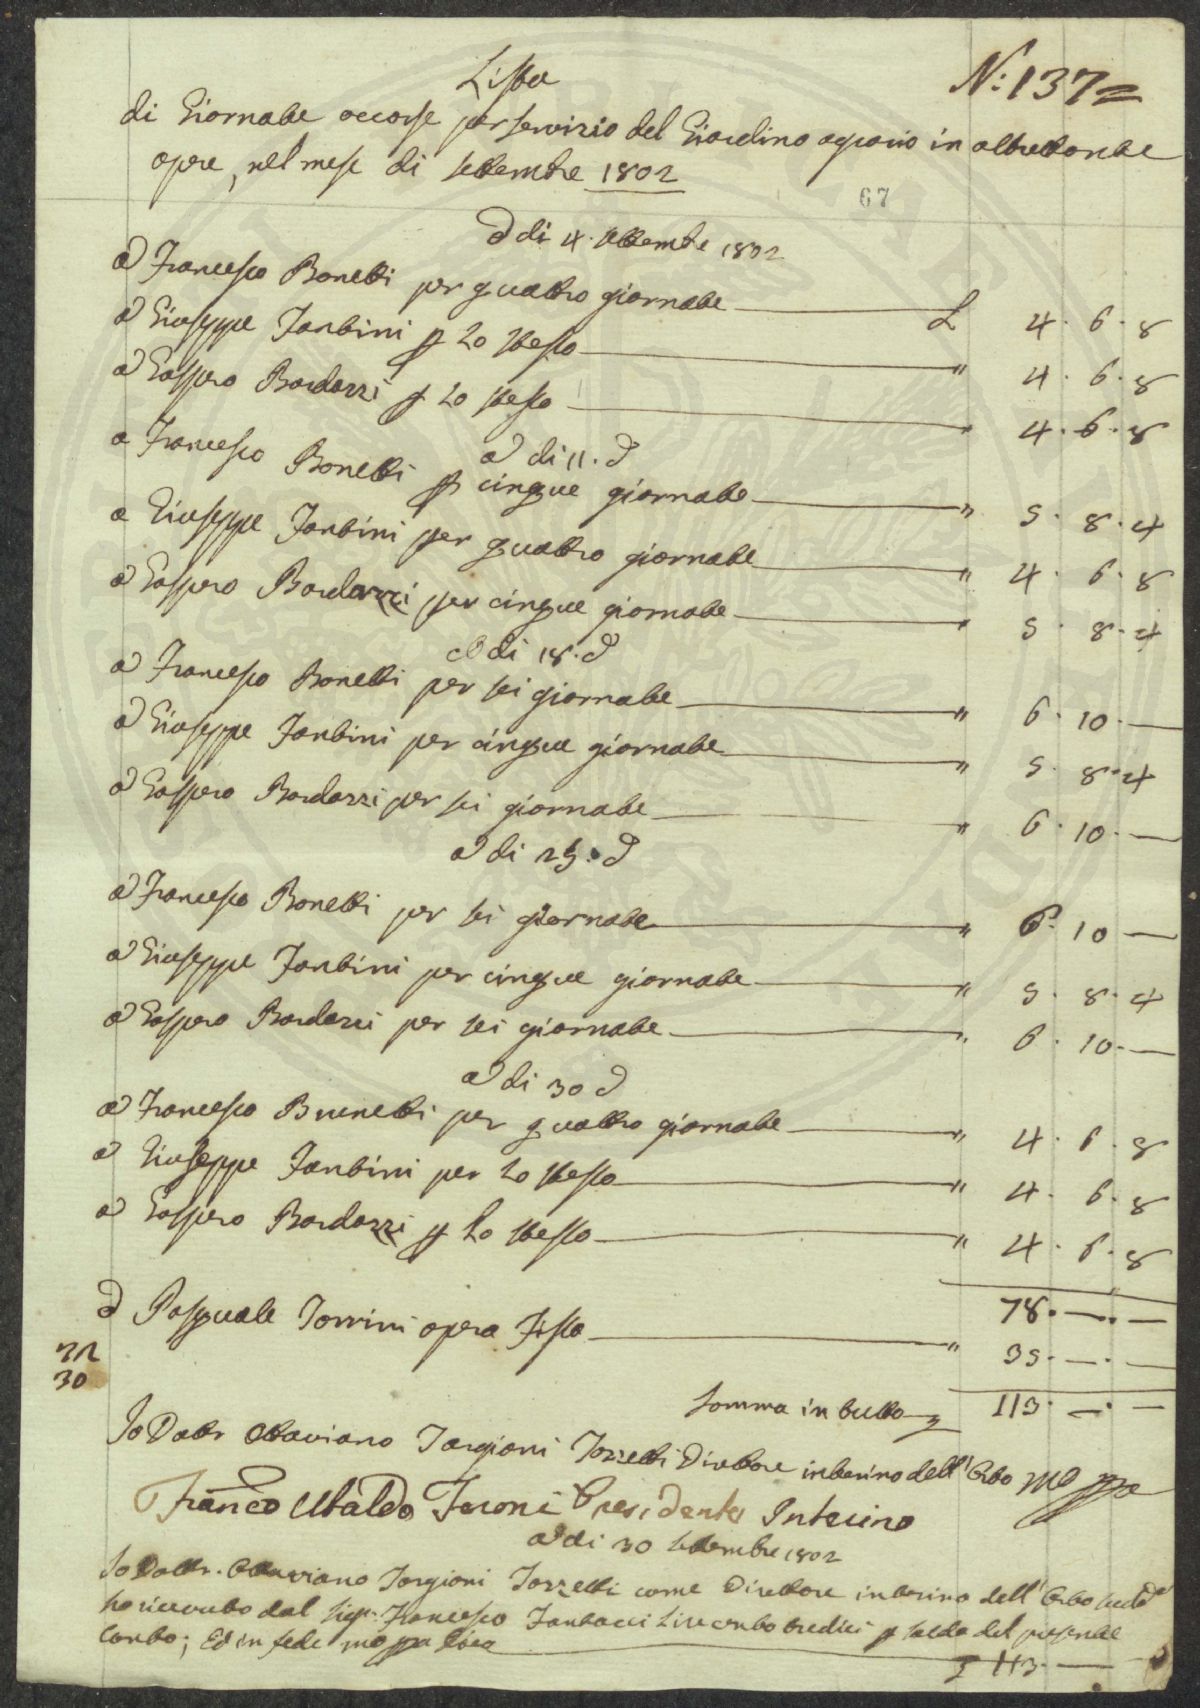 N: 137=
Lista
di Giornate occorse per servizio del Giardino agrario in altrettante
opere, nel mese di settembre 1802
67
A di 4. settembre 1802
A Francesco Bonetti per quattro giornate L 4. 6. 8
A Giuseppe Fantini p lo stesso " 4. 6. 8
A Gaspero Bardazzi p lo stesso " 4. 6. 8
a di 11. d
a Francesco Bonetti p cinque giornate " 5. 8. 4
a Giuseppe Fantini per quattro giornate " 4. 6. 8
a Gaspero Bardazzi per cinque giornate " 5. 8. 4
A di 18. d
A Francesco Bonetti per sei giornate " 6. 10. —
A Giuseppe Fantini per cinque giornate " 5. 8. 4
A Gaspero Bardazzi per sei giornate " 6. 10. —
a di 25. d
A Francesco Bonetti per sei giornate " 6. 10 —
A Giuseppe Fantini per cinque giornate " 5. 8. 4
A Gaspero Bardazzi per sei giornate " 6. 10. —
A di 30 d
A Francesco Brunetti per quattro giornate " 4. 6. 8
A Giuseppe Fantini per lo stesso " 4. 6. 8
A Gaspero Bardazzi p lo stesso " 4. 6. 8
78. —. —
A Pasquale Torrini opera fissa " 35. —. —
30
Somma in tutto 113. —. —
Io Dottr Ottaviano Targioni Tozzetti Direttore interino dell' Orto mo ppa
Franco Ubaldo Feroni Presidente Interino
A di 30 settembre 1802
Io Dottr. Ottaviano Targioni Tozzetti come Direttore interino dell' Orto
ho ricevuto dal Sigr. Francesco Lire cento tredici p saldo del presente
Conto; Ed in fede mo ppa
£ 113. —